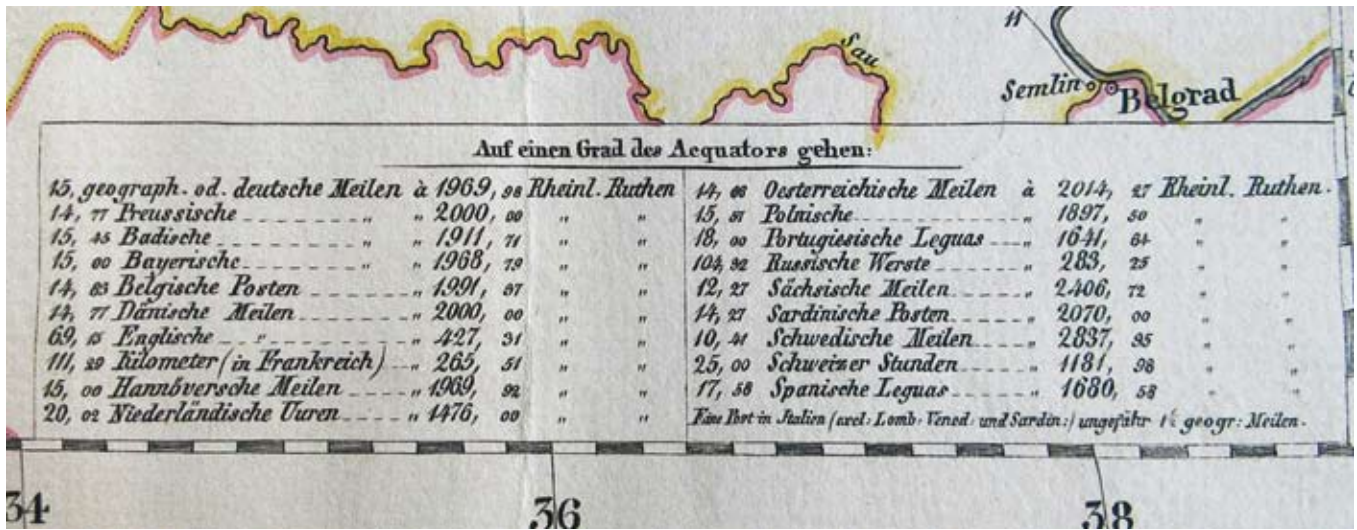 Sau
11
Semlin
Belgrad
Auf einen Grad des Aequators gehen:
15, geograph. od. deutsche Meilen à 1969, 98 Rheinl. Ruthen
14, 77 Preussische „ „ 2000, 00 „ „
15, 45 Badische „ „ 1911, 71 „ „
15, 00 Bayerische „ „ 1968, 79 „ „
14, 83 Belgische Posten „ 1991, 87 „ „
14, 77 Dänische Meilen „ 2000, 00 „ „
69, 15 Englische „ „ 427, 31 „ „
111, 29 Kilometer (in Frankreich) „ 265, 51 „ „
15, 00 Hannöversche Meilen „ 1969, 92 „ „
20, 02 Niederländische Uuren „ 1476, 00 „ „
14, 66 Oesterreichische Meilen à 2014, 27 Rheinl. Ruthen.
15, 57 Polnische „ „ 1897, 50 „ „
18, 00 Portugiesische Leguas „ 1641, 64 „ „
104, 92 Russische Werste „ 283, 25 „ „
12, 27 Sächsische Meilen „ 2406, 72 „ „
14, 27 Sardinische Posten „ 2070, 00 „ „
10, 41 Schwedische Meilen „ 2837, 95 „ „
25, 00 Schweizer Stunden „ 1181, 98 „ „
17, 58 Spanische Leguas „ 1680, 58 „ „
Eine Post in Italien (excl: Lomb: Vened: und Sardin:) ungefähr geogr: Meilen.
34
36
38